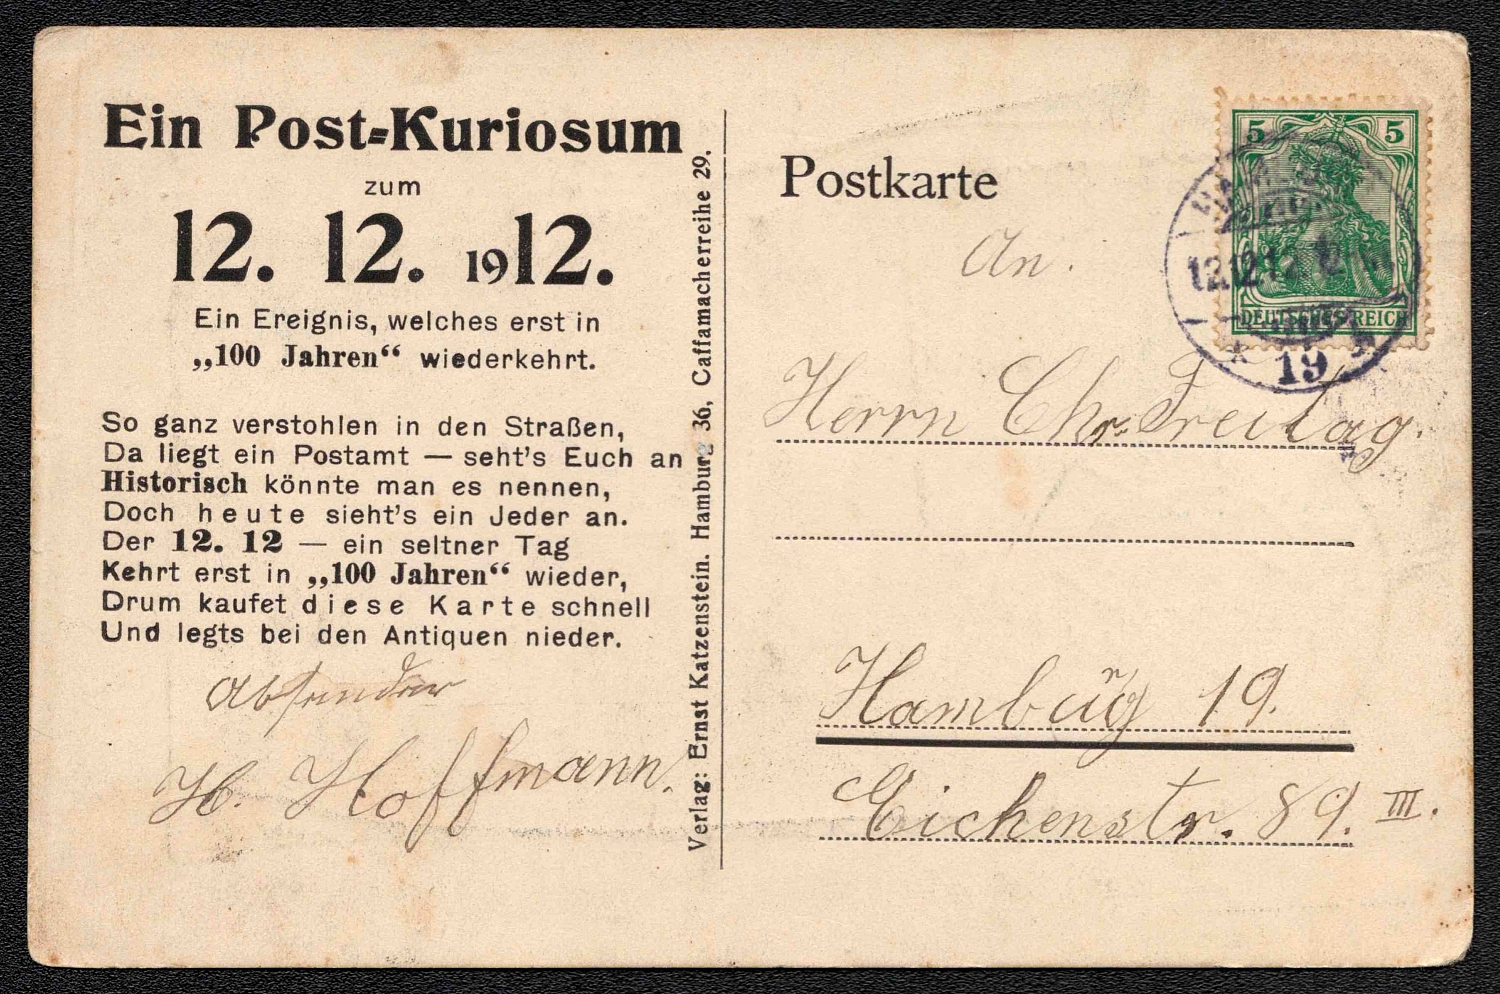 Ein Post-Kuriosum
zum
12. 12. 1912.
Ein Ereignis, welches erst in
„100 Jahren“ wiederkehrt.
So ganz verstohlen in den Straßen,
Da liegt ein Postamt — seht's Euch an
Historisch könnte man es nennen,
Doch heute sieht's ein Jeder an.
Der 12. 12 — ein seltner Tag
Kehrt erst in „100 Jahren“ wieder,
Drum kaufet diese Karte schnell
Und legts bei den Antiquen nieder.
Absender
H. Hoffmann.
Verlag: Ernst Katzenstein. Hamburg 36, Caffamacherreihe 29.
Postkarte
5 5
DEUTSCHES REICH
12.12.12. 12
* 19
An.
Herrn Chr. Freitag.
Hamburg 19.
Eichenstr. 89. III.